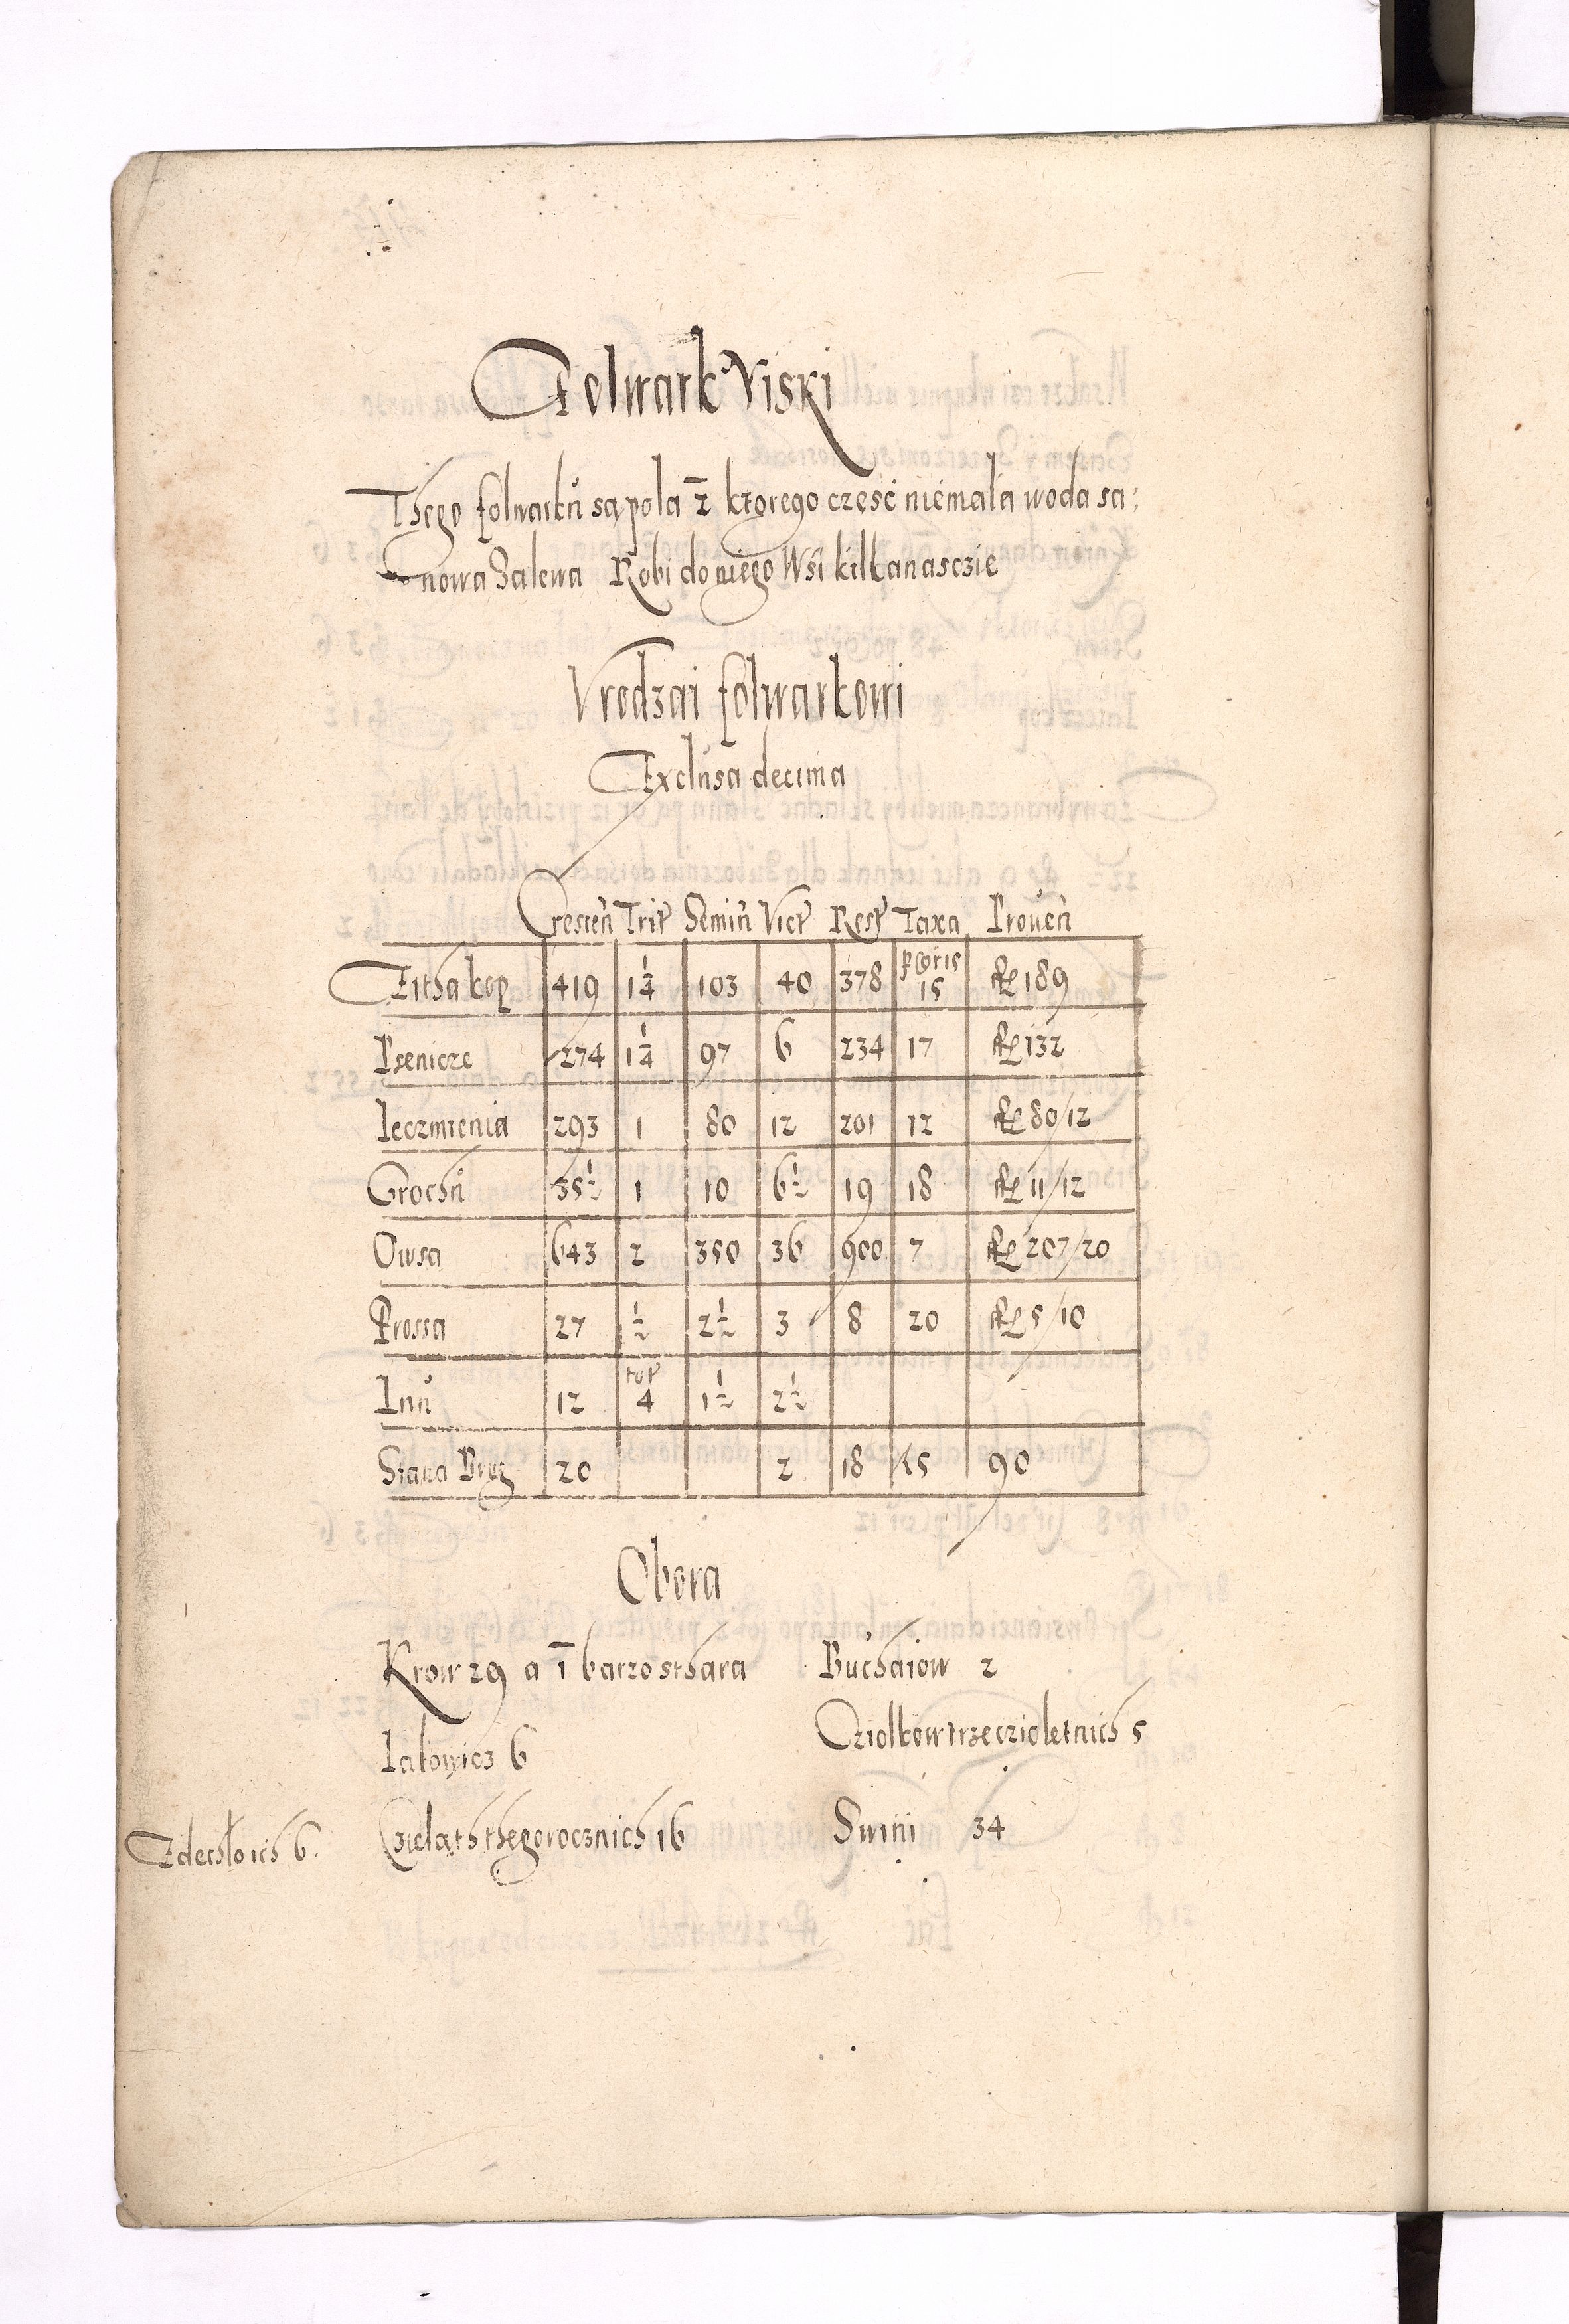 Folwark Viski
Thego folwarku są pola z ktorego częsć niemala woda sa:
nowa Salewa Robi do niego Wsi kilkanasczie
Vrodzai folwarkowi
Exclusa decima
Crescen Trit Semin Vict Rest Taxa Proven
Zitha kop 419 1 1/4 103 40 378 p gr 15 15 fl 189
Psenicze 274 1 1/4 97 6 234 17 fl 132
Ieczmienia 293 1 80 12 201 12 fl 80/12
Grochu 35 1/2 1 10 6 1/2 19 18 fl 11/12
Owsa 643 2 350 36 900 7 fl 207/20
Prossa 27 1/2 2 1/2 3 8 20 fl 5/10
Lnu 12 4 1 1/2 2 1/2
Siana Brog 20 2 18 15 90
Obora
Krow 29 a 1 barzo sthara Buchaiow 2
Ialowicz 6 Cziolkow trzeczioletnich 5
Zdechło ich 6. Czieląth thegorocznich 16 Swini 34